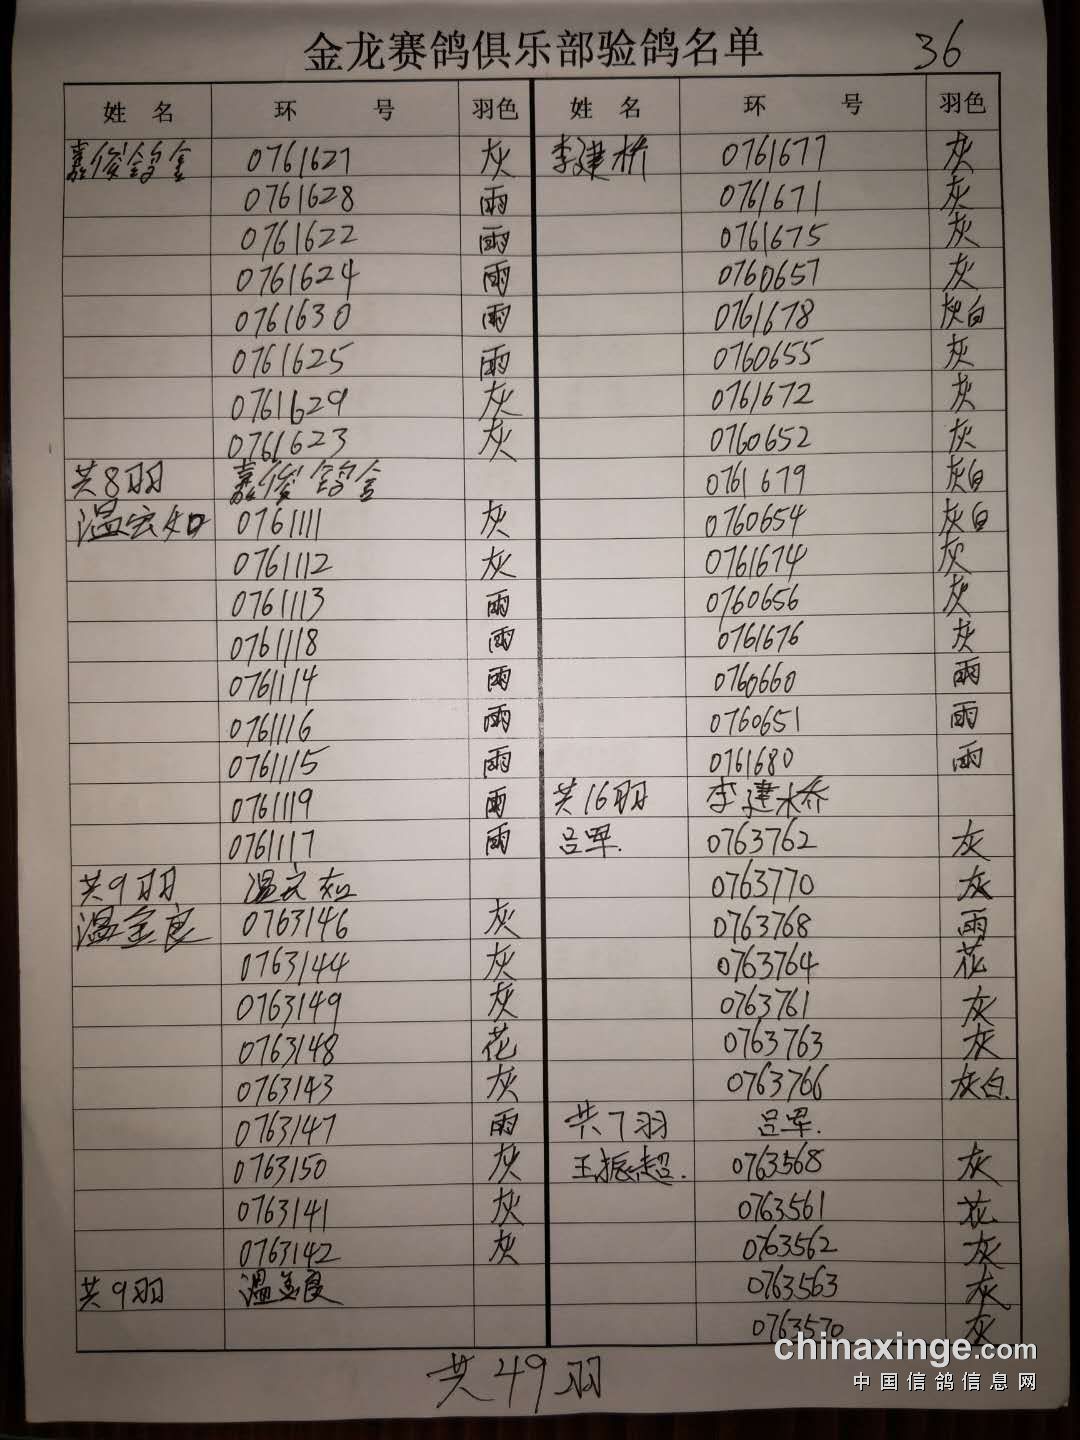 金龙赛鸽俱乐部验鸽名单
36
姓 名 环 号 羽色
嘉俊鸽舍 0761627 灰
0761628 雨
0761622 雨
0761624 雨
0761630 雨
0761625 雨
0761629 灰
0761623 灰
共8羽 嘉俊鸽舍
温宏如 0761111 灰
0761112 灰
0761113 雨
0761118 雨
0761114 雨
0761116 雨
0761115 雨
0761119 雨
0761117 雨
共9羽 温宏如
温金良 0763146 灰
0763144 灰
0763149 灰
0763148 花
0763143 灰
0763147 雨
0763150 灰
0763141 灰
0763142 灰
共9羽 温金良
姓 名 环 号 羽色
李建桥 0761677 灰
0761671 灰
0761675 灰
0760657 灰
0761678 灰白
0760655 灰
0761672 灰
0760652 灰
0761679 灰白
0760654 灰白
0761674 灰
0760656 灰
0761676 灰
0760660 雨
0760651 雨
0761680 雨
共16羽 李建桥
吕军. 0763762 灰
0763770 灰
0763768 雨
0763764 花
0763761 灰
0763763 灰
0763766 灰白.
共7羽 吕军.
王振超. 0763568 灰
0763561 花
0763562 灰
0763563 灰
0763570 灰
共49羽
chinaxinge.com
中国信鸽信息网